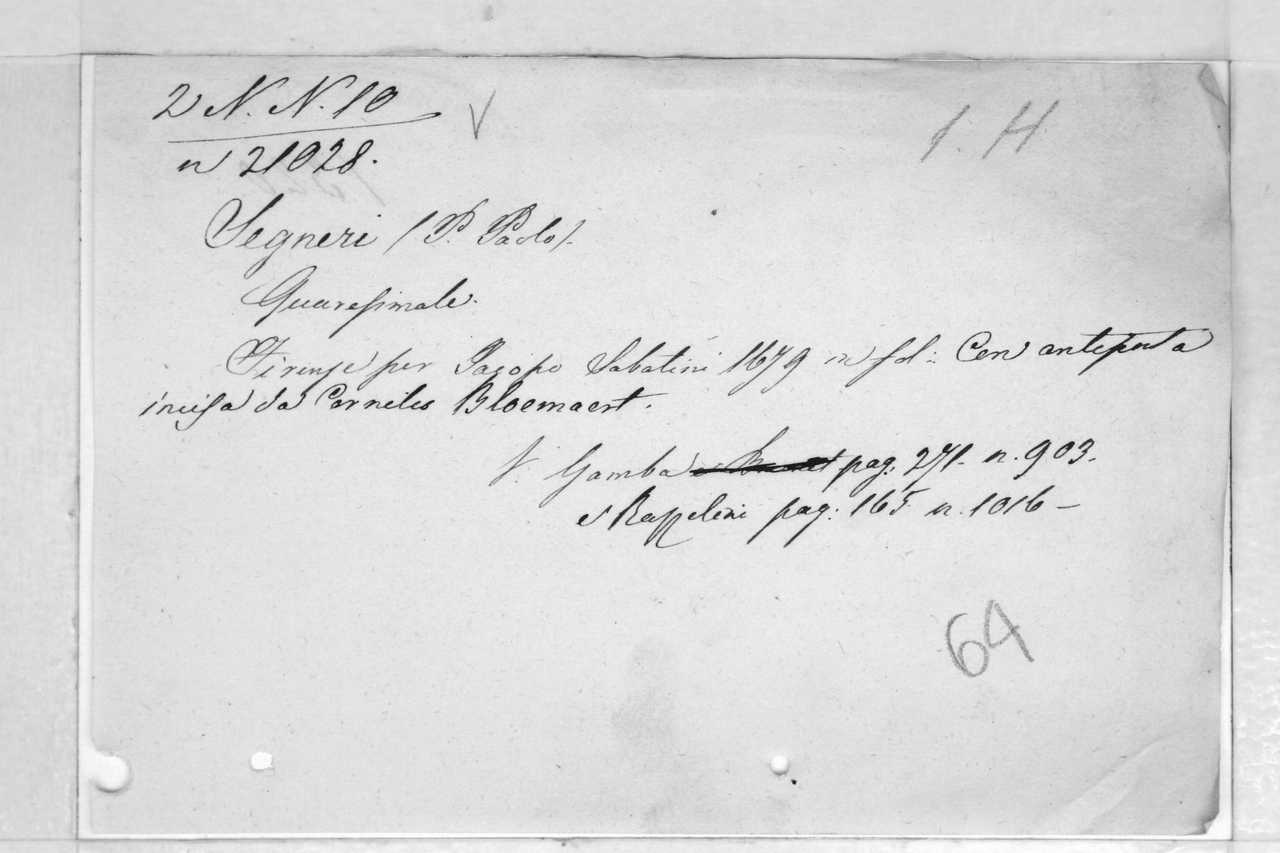 2 N. N. 10
V
1. H
n 21028.
Segneri (P. Paolo).
Quaresimale.
Firenze per Jacopo Sabatini 1679 in fol. Con antiporta
incisa da Cornelio Bloemaert.
V. Gamba pag. 271. n. 903.
e Razzolini pag. 165 n. 1016 –
64